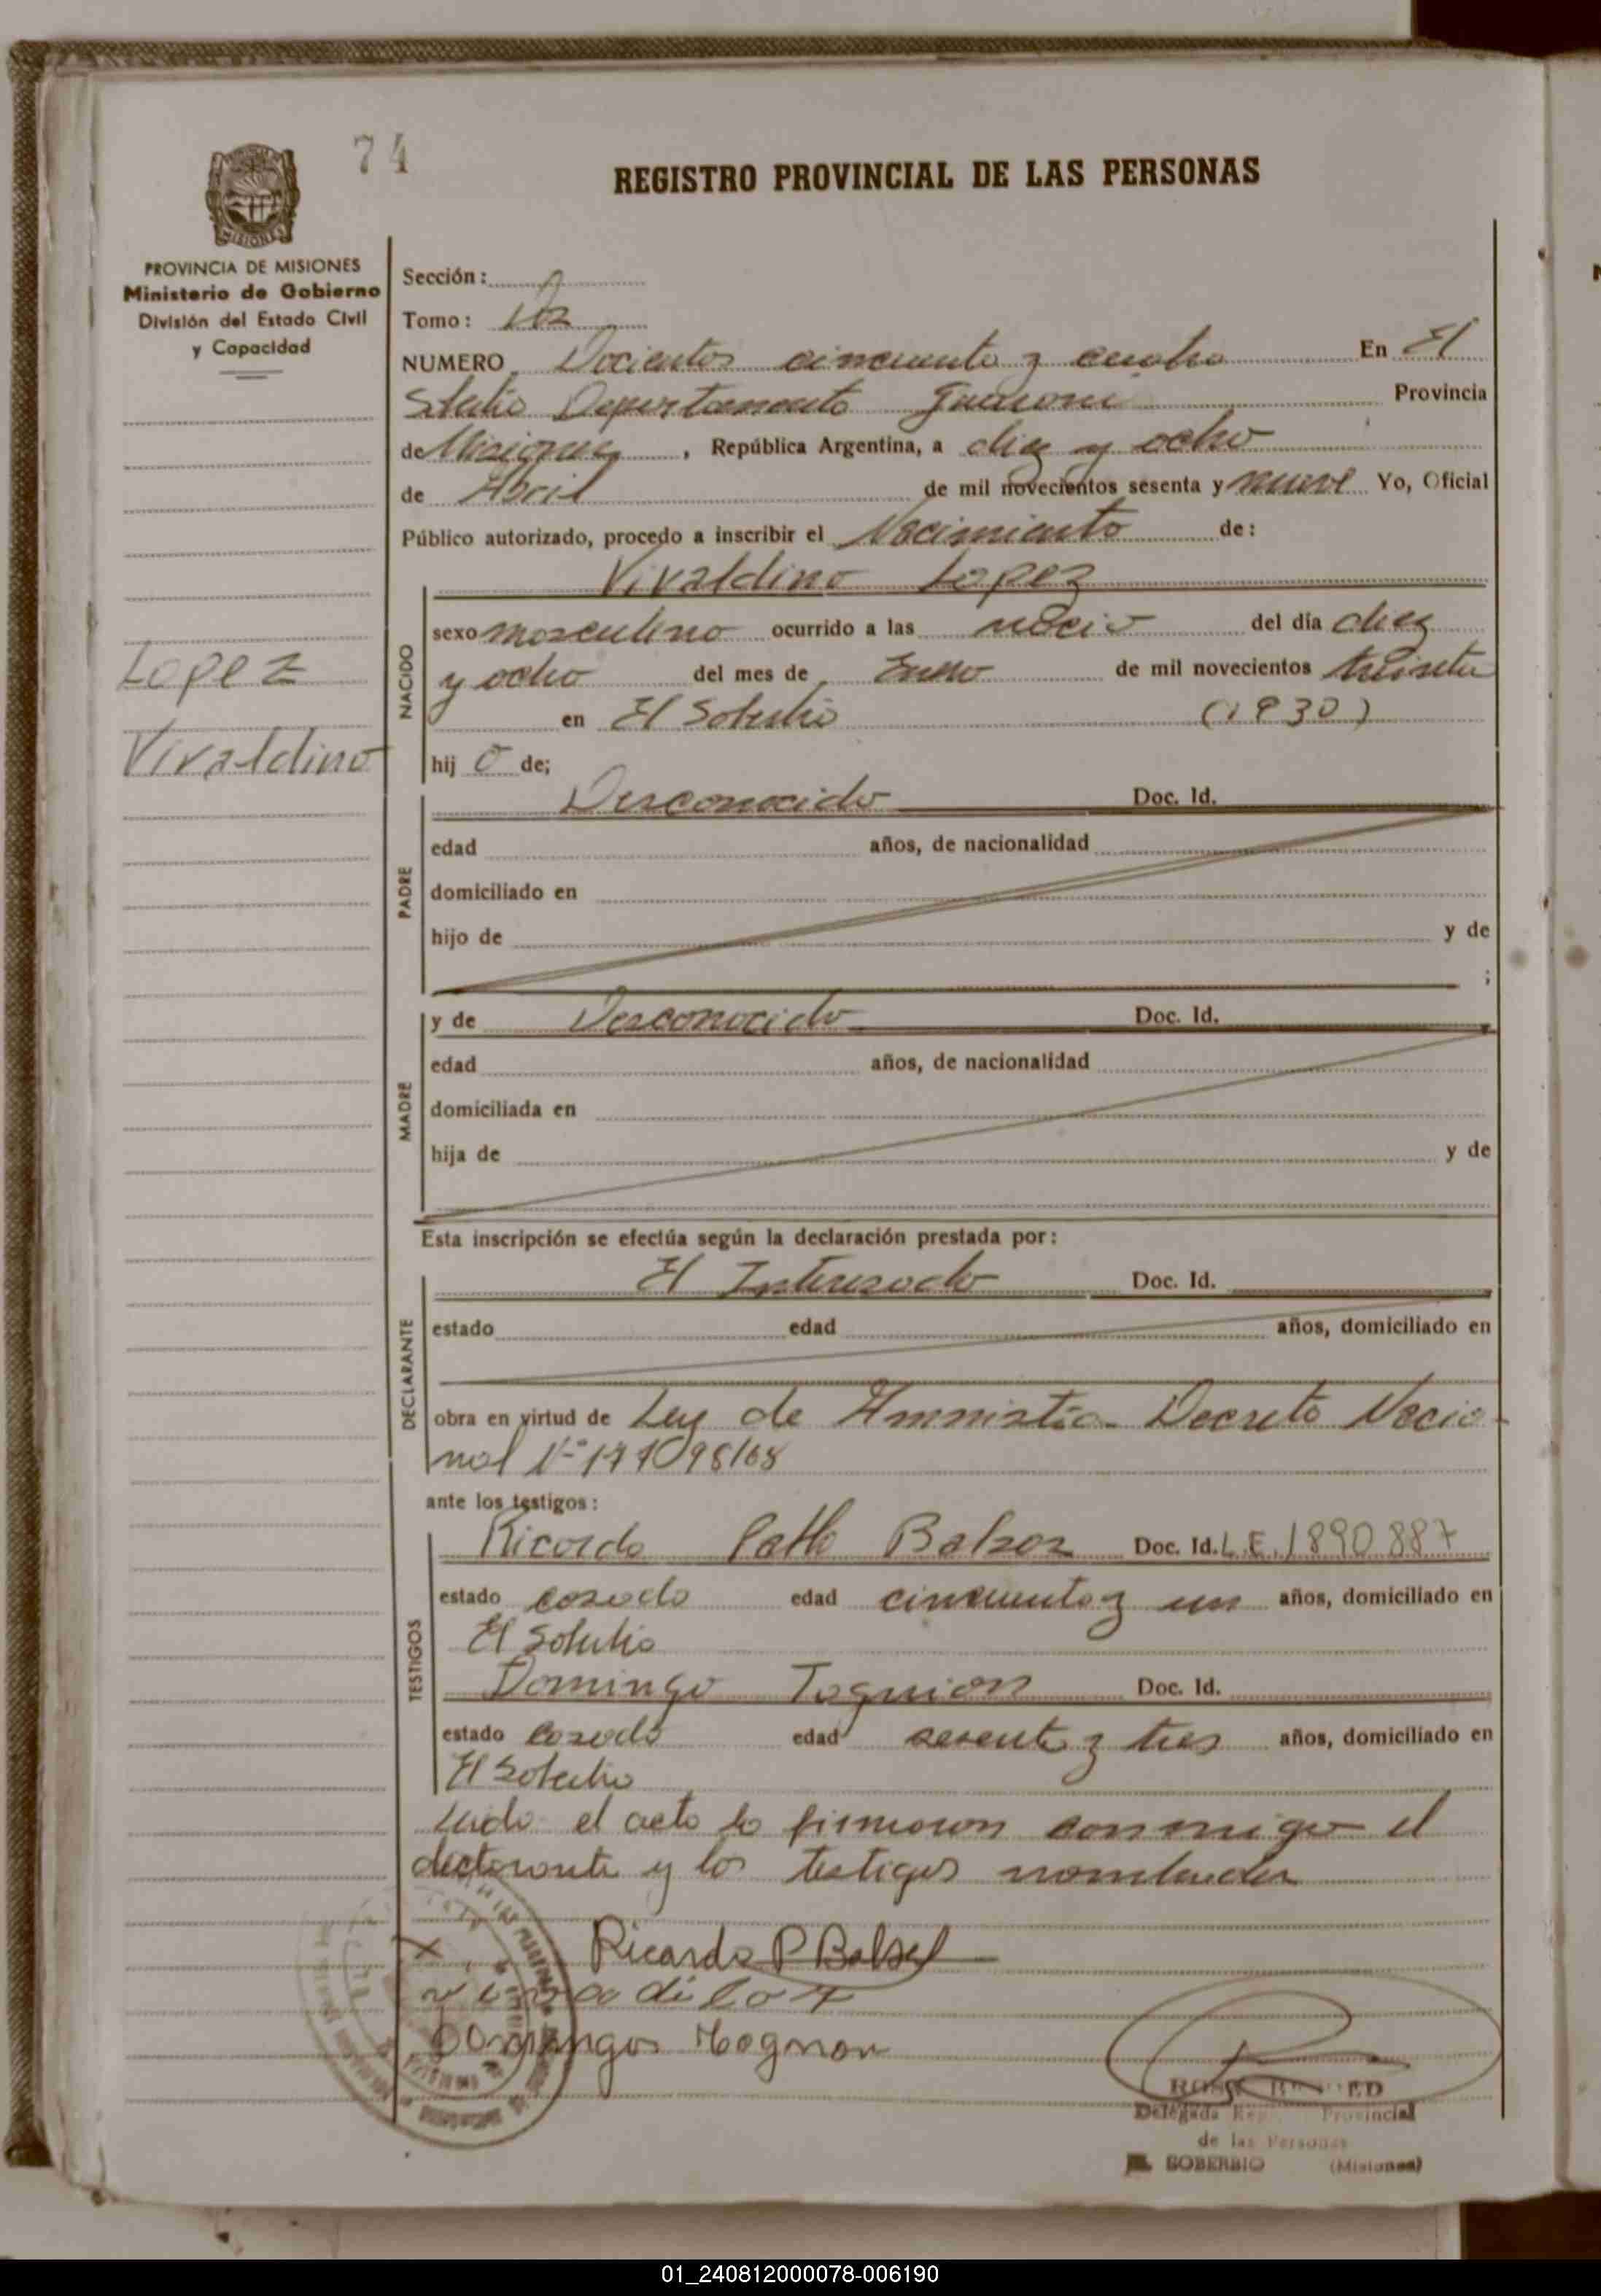 74
REGISTRO PROVINCIAL DE LAS PERSONAS
MISIONES
PROVINCIA DE MISIONES
Ministerio de Gobierno
División del Estado Civil
y Capacidad
Sección:
Tomo: 1º
NUMERO Docientos cincuenta y cuatro En El
Departamento Guarani Provincia
de Misiones, República Argentina, a diez y ocho
de Abril de mil novecientos sesenta y nueve Yo, Oficial
Público autorizado, procedo a inscribir el Nacimiento de:
Vivaldino Lopez
NACIDO
sexo masculino ocurrido a las del día diez
y ocho del mes de Enero de mil novecientos treinta
en El Soberbio (1930)
hijo de;
Lopez
Vivaldino
PADRE
Desconocido Doc. Id.
edad años, de nacionalidad
domiciliado en
hijo de y de
;
MADRE
y de Desconocido Doc. Id.
edad años, de nacionalidad
domiciliada en
hija de y de
Esta inscripción se efectúa según la declaración prestada por:
DECLARANTE
El Interesado Doc. Id.
estado edad años, domiciliado en
obra en virtud de Ley de Amnistia Decreto Nacio
nal Nº
ante los testigos:
TESTIGOS
Ricardo Pablo Balzer Doc. Id. L.E. 1890.887
estado casado edad cincuenta y un años, domiciliado en
El Soberbio
Domingo Tognion Doc. Id.
estado casado edad sesenta y tres años, domiciliado en
El Soberbio
Leido el acto lo firmaron conmigo el
declarante y los testigos nombrados
X
Ricardo P Balzer
Domingos Tognon
Delegada Provincial
de las Personas
SOBERBIO (Misiones)
01_240812000078-006190